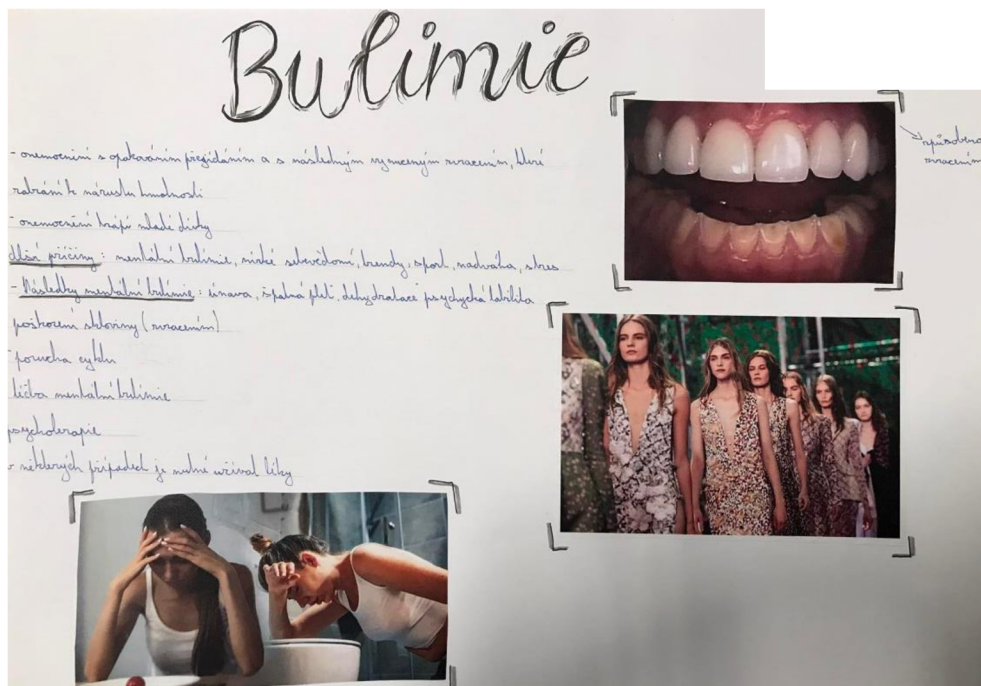 Bulimie
- onemocnění s opakováním přejídáním a s následným vynuceným zvracením, které
zabrání k nárustu hmotnosti
- onemocnění trápí mladé dívky
dlší příčiny: mentální bulimie, nízké sebevědomí, trendy, sport, nadváha, stres
- Následky mentální bulimie: únava, špatná pleť, dehydratace psychycká labilita
poškození skloviny (zvracením)
- porucha cyklu
léčba mentální bulimie
psychoterapie
v některých případech je nutné užívat léky
způsobeno
zvracením